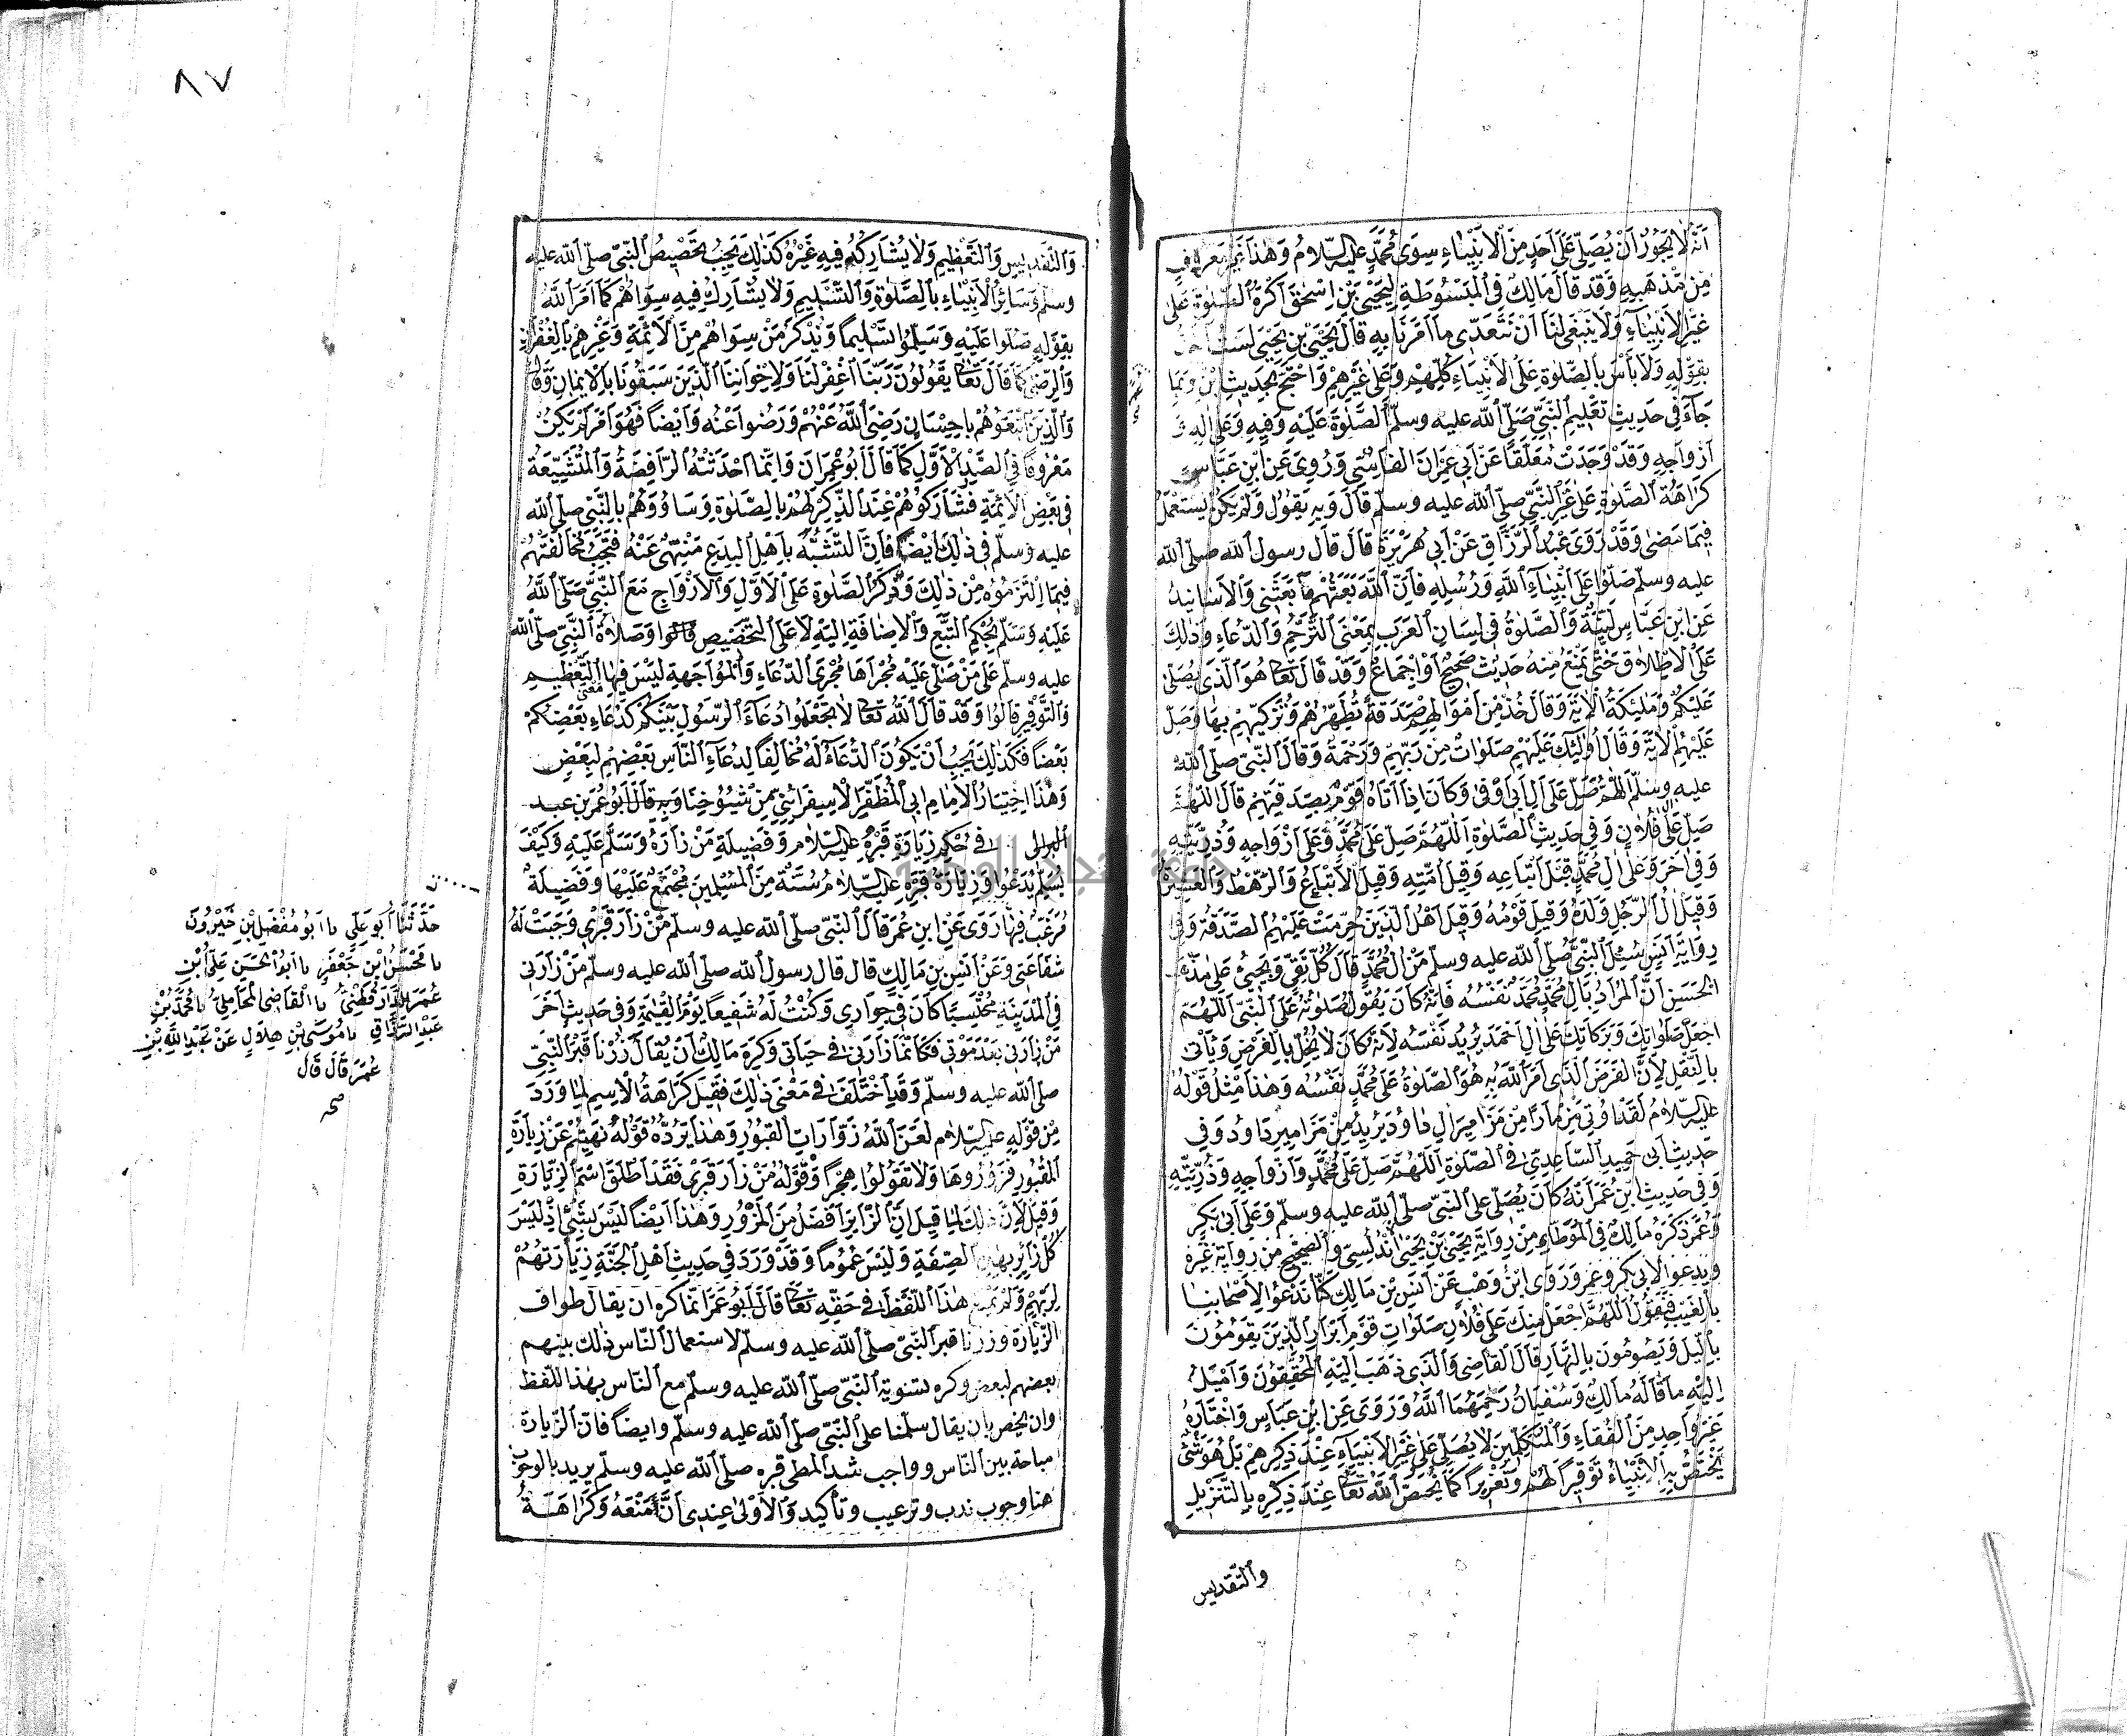 اَنَّهُ لَا يَجُوزُ اَنْ يُصَلِّىَ عَلَى اَحَدٍ مِنَ الْاَنْبِيَاءِ سِوَى مُحَمَّدٍ عليه السلامُ وَهٰذَا غَيْرُ مَعْرُوفٍ
مِنْ مَذْهَبِهِ وَقَدْ قَالَ مَالِكٌ فِى الْمَبْسُوطَةِ لِيَحْيَىَ بْنِ اِسْحٰقَ اَكْرَهُ الصَّلٰوةَ عَلَى
غَيْرِ الْاَنْبِيَاءِ وَلَا يَنْبَغِى لَنَا اَنْ نَتَعَدَّى مَا اُمِرْنَا بِهِ قَالَ يَحْيَىَ بْنِ يَحْيَى لَسْتُ
بِقَوْلِهِ وَلَا بَأْسَ بِالصَّلٰوةِ عَلَى الْاَنْبِيَاءِ كُلِّهِمْ وَعَلَى غَيْرِهِمْ وَاحْتَجَّ بِحَدِيثِ ابْنِ
جَاءَ فِى حَدِيثِ تَعْلِيمِ النَّبِىِّ صَلَّى اللّٰه عليه وسلّم الصَّلٰوةَ عَلَيْهِ وَفِيهِ وَعَلَى اٰلِهِ وَ
اَزْوَاجِهِ وَقَدْ وَجَدْتُ مُعَلَّقًا عَنْ اَبِى عِمْرَانَ الْفَاسِىِّ وَرُوِىَ عَنِ ابْنِ عَبَّاسٍ
كَرَاهَةُ الصَّلٰوةِ عَلَى غَيْرِ النَّبِىِّ صلّى اللّٰه عليه وسلّم قَالَ وَبِهِ يَقُولُ وَلَمْ يَكُنْ يُسْتَعْمَلُ
فِيمَا مَضٰى وَقَدْ رَوَى عَبْدُ الرَّزَّاقِ عَنْ اَبِى هُرَيْرَةَ قَالَ قَالَ رسول اللّٰه صلّى اللّٰه
عليه وسلّم صَلُّوا عَلَى اَنْبِيَاءِ اللّٰهِ وَرُسُلِهِ فَاِنَّ اللّٰهَ بَعَثَهُمْ كَمَا بَعَثَنِى وَالْاَسَانِيدُ
عَنِ ابْنِ عَبَّاسٍ لَيِّنَةٌ وَالصَّلٰوةُ فِى لِسَانِ الْعَرَبِ بِمَعْنَى التَّرَحُّمِ وَالدُّعَاءِ وَذٰلِكَ
عَلَى الْاِطْلَاقِ حَتّٰى يَمْنَعَ مِنْهُ حَدِيثٌ صَحِيحٌ اَوْ اِجْمَاعٌ وَقَدْ قَالَ تَعَا هُوَ الَّذِى يُصَلِّى
عَلَيْكُمْ وَمَلٰئِكَتُهُ الْاٰيَةَ وَقَالَ خُذْ مِنْ اَمْوَالِهِمْ صَدَقَةً تُطَهِّرُهُمْ وَتُزَكِّيهِمْ بِهَا وَصَلِّ
عَلَيْهِمُ الْاٰيَةَ وَقَالَ اُولٰئِكَ عَلَيْهِمْ صَلَوَاتٌ مِنْ رَبِّهِمْ وَرَحْمَةٌ وَقَالَ النَّبِىّ صلّى اللّٰه
عليه وسلّم اَللّٰهُمَّ صَلِّ عَلَى اٰلِ اَبِى اَوْفَى وَكَانَ اِذَا اَتَاهُ قَوْمٌ بِصَدَقَتِهِمْ قَالَ اللّٰهُمَّ
صَلِّ عَلَى فُلَانٍ وَفِى حَدِيثِ الصَّلٰوةِ اَللّٰهُمَّ صَلِّ عَلَى مُحَمَّدٍ وَعَلَى اَزْوَاجِهِ وَذُرِّيَّتِهِ
وَفِى اٰخَرَ وَعَلَى اٰلِ مُحَمَّدٍ قِيلَ اَتْبَاعِهِ وَقِيلَ اُمَّتِهِ وَقِيلَ الْاَتْبَاعُ وَالرَّهْطُ وَالْعَشِيرَةُ
وَقِيلَ اٰلُ الرَّجُلِ وَلَدُهُ وَقِيلَ قَوْمُهُ وَقِيلَ اَهْلُ الَّذِينَ حُرِّمَتْ عَلَيْهِمُ الصَّدَقَةُ وَفِى
رِوَايَةِ اَنَسٍ سُئِلَ النَّبِىُّ صلّى اللّٰه عليه وسلّم مَنْ اٰلُ مُحَمَّدٍ قَالَ كُلُّ تَقِىٍّ وَيَجِىءُ عَلَى مَذْهَبِ
الْحَسَنِ اَنَّ الْمُرَادَ بِاٰلِ مُحَمَّدٍ مُحَمَّدٌ نَفْسُهُ فَاِنَّهُ كَانَ يَقُولُ صَلٰوتُهُ عَلَى النَّبِىِّ اَللّٰهُمَّ
اجْعَلْ صَلَوَاتِكَ وَبَرَكَاتِكَ عَلَى اٰلِ اَحْمَدَ يُرِيدُ نَفْسَهُ لِاَنَّهُ كَانَ لَا يُخِلُّ بِالْفَرْضِ وَيَأْتِى
بِالنَّفْلِ لِاَنَّ الْفَرْضَ الَّذِى اَمَرَ اللّٰهُ بِهِ هُوَ الصَّلٰوةُ عَلَى مُحَمَّدٍ نَفْسُهُ وَهٰذَا مِثْلُ قَوْلِهِ
عليه السّلامُ لَقَدْ اُوتِىَ مِزْمَارًا مِنْ مَزَامِيرِ اٰلِ دَاوُدَ يُرِيدُ مِنْ مَزَامِيرِ دَاوُدَ وَفِى
حَدِيثِ اَبِى حُمَيْدٍ السَّاعِدِىِّ فِى الصَّلٰوةِ اَللّٰهُمَّ صَلِّ عَلَى مُحَمَّدٍ وَاَزْوَاجِهِ وَذُرِّيَّتِهِ
وَفِى حَدِيثِ ابْنِ عُمَرَ اَنَّهُ كَانَ يُصَلِّى عَلَى النَّبِىِّ صلّى اللّٰه عليه وسلّم وَعَلَى اَبِى بَكْرٍ
وَعُمَرَ ذَكَرَهُ مَالِكٌ فِى الْمُوَطَّاءِ مِنْ رِوَايَةِ يَحْيَىَ بْنِ يَحْيَى اَنْدُلُسِىِّ وَالصَّحِيحُ مِنْ رِوَايَةِ غَيْرِهِ
وَيَدْعُو لِاَبِى بَكْرٍ وَعُمَرَ وَرَوَى ابْنُ وَهْبٍ عَنْ اَنَسِ بْنِ مَالِكٍ كُنَّا نَدْعُو لِاَصْحَابِنَا
بِالْغَيْبِ فَنَقُولُ اَللّٰهُمَّ اجْعَلْ مِنْكَ عَلَى فُلَانٍ صَلَوَاتِ قَوْمٍ اَبْرَارٍ الَّذِينَ يَقُومُونَ
بِاللَّيْلِ وَيَصُومُونَ بِالنَّهَارِ قَالَ الْقَاضِى وَالَّذِى ذَهَبَ اِلَيْهِ الْمُحَقِّقُونَ وَاَمِيلُ
اِلَيْهِ مَا قَالَهُ مَالِكٌ وَسُفْيَانُ رَحِمَهُمَا اللّٰهُ وَرَوَى عَنِ ابْنِ عَبَّاسٍ وَاخْتَارَهُ
غَيْرُ وَاحِدٍ مِنَ الْفُقَهَاءِ وَالْمُتَكَلِّمِينَ لَا يُصَلَّى عَلَى غَيْرِ الْاَنْبِيَاءِ عِنْدَ ذِكْرِهِمْ بَلْ هُوَ شَىْءٌ
يَخْتَصُّ بِهِ الْاَنْبِيَاءُ تَوْقِيرًا لَهُمْ وَتَعْزِيزًا كَمَا يُخَصُّ اللّٰهُ تَعَا عِنْدَ ذِكْرِهِ بِالتَّنْزِيهِ
والتّقديس
٨٧
وَالتَّقْدِيسِ وَالتَّعْظِيمِ وَلَا يُشَارِكُهُ فِيهِ غَيْرُهُ كَذٰلِكَ يَجِبُ تَخْصِيصُ النَّبِىّ صلّى اللّٰه عليه
وسلّم وَسَائِرِ الْاَنْبِيَاءِ بِالصَّلٰوةِ وَالتَّسْلِيمِ وَلَا يُشَارِكُ فِيهِ سِوَاهُمْ كَمَا اَمَرَ اللّٰهُ
بِقَوْلِهِ صَلُّوا عَلَيْهِ وَسَلِّمُوا تَسْلِيمًا وَيُذْكَرُ مَنْ سِوَاهُمْ مِنَ الْاَئِمَّةِ وَغَيْرِهِمْ بِالْغُفْرَانِ
وَالرِّضَى كَمَا قَالَ تَعَا يَقُولُونَ رَبَّنَا اغْفِرْ لَنَا وَلِاِخْوَانِنَا الَّذِينَ سَبَقُونَا بِالْاِيمَانِ وَقَالَ
وَالَّذِينَ اتَّبَعُوهُمْ بِاِحْسَانٍ رَضِىَ اللّٰهُ عَنْهُمْ وَرَضُوا عَنْهُ وَاَيْضًا فَهُوَ اَمْرٌ لَمْ يَكُنْ
مَعْرُوفًا فِى الصَّدْرِ الْاَوَّلِ كَمَا قَالَ اَبُو عِمْرَانَ وَاِنَّمَا اَحْدَثَتْهُ الرَّافِضَةُ وَالْمُتَشَيِّعَةُ
فِى بَعْضِ الْاَئِمَّةِ فَشَارَكُوهُمْ عِنْدَ الذِّكْرِ لَهُمْ بِالصَّلٰوةِ وَسَاوُوهُمْ بِالنَّبِىِّ صلّى اللّٰه
عليه وسلّم فِى ذٰلِكَ اَيْضًا فَاِنَّ التَّشَبُّهَ بِاَهْلِ الْبِدَعِ مَنْهِىٌّ عَنْهُ فَتَجِبُ مُخَالَفَتُهُمْ
فِيمَا الْتَزَمُوهُ مِنْ ذٰلِكَ وَذِكْرُ الصَّلٰوةِ عَلَى الْاٰلِ وَالْاَزْوَاجِ مَعَ النَّبِىِّ صَلَّى اللّٰهُ
عَلَيْهِ وَسَلَّمَ بِحُكْمِ التَّبَعِ وَالْاِضَافَةِ اِلَيْهِ لَا عَلَى التَّخْصِيصِ قَالُوا وَصَلَاةُ النَّبِىّ صلّى اللّٰه
عليه وسلّم عَلَى مَنْ صَلَّى عَلَيْهِ مُجْرَاهَا مُجْرَى الدُّعَاءِ وَالْمُوَاجَهَةِ لَيْسَ فِيهَا مَعْنَى التَّعْظِيمِ
وَالتَّوْقِيرِ قَالُوا وَقَدْ قَالَ اللّٰهُ تَعَا لَا تَجْعَلُوا دُعَاءَ الرَّسُولِ بَيْنَكُمْ كَدُعَاءِ بَعْضِكُمْ
بَعْضًا فَكَذٰلِكَ يَجِبُ اَنْ يَكُونَ الدُّعَاءُ لَهُ مُخَالِفًا لِدُعَاءِ النَّاسِ بَعْضِهِمْ لِبَعْضٍ
وَهٰذَا اخْتِيَارُ الْاِمَامِ اَبِى الْمُظَفَّرِ الْاِسْفَرَائِنِىِّ مِنْ شُيُوخِنَا وَبِهِ قَالَ اَبُو عُمَرَ بْنِ عبد
البر فِى حُكْمِ زِيَارَةِ قَبْرِهِ عليه السّلامُ وَفَضِيلَةِ مَنْ زَارَهُ وَسَلَّمَ عَلَيْهِ وَكَيْفَ
يُسَلِّمُ يَدْعُوا وَزِيَارَةُ قَبْرِهِ عليه السّلامُ سُنَّةٌ مِنَ الْمُسْلِمِينَ مُجْتَمَعٌ عَلَيْهَا وَفَضِيلَةٌ
مُرَغَّبٌ فِيهَا رَوَى عَنِ ابْنِ عُمَرَ قَالَ النَّبِىّ صلّى اللّٰه عليه وسلّم مَنْ زَارَ قَبْرِى وَجَبَتْ لَهُ
شَفَاعَتِى وَعَنْ اَنَسِ بْنِ مَالِكٍ قال قال رسول اللّٰه صلّى اللّٰه عليه وسلّم مَنْ زَارَنِى
فِى الْمَدِينَةِ مُحْتَسِبًا كَانَ فِى جِوَارِى وَكُنْتُ لَهُ شَفِيعًا يَوْمَ الْقِيٰمَةِ وَفِى حَدِيثٍ اٰخَرَ
مَنْ زَارَنِى بَعْدَ مَوْتِى فَكَاَنَّمَا زَارَنِى فِى حَيَاتِى وَكَرِهَ مَالِكٌ اَنْ يُقَالَ زُرْنَا قَبْرَ النَّبِىِّ
صلّى اللّٰه عليه وسلّم وَقَدِ اخْتُلِفَ فِى مَعْنَى ذٰلِكَ فَقِيلَ كَرَاهَةُ الْاِسْمِ لِمَا وَرَدَ
مِنْ قَوْلِهِ عليه السّلام لَعَنَ اللّٰهُ زَوَّارَاتِ الْقُبُورِ وَهٰذَا يَرُدُّهُ قَوْلُهُ نَهَيْتُكُمْ عَنْ زِيَارَةِ
الْقُبُورِ فَزُورُوهَا وَلَا تَقُولُوا هُجْرًا وَقَوْلُهُ مَنْ زَارَ قَبْرِى فَقَدْ اَطْلَقَ اسْمَ الزِّيَارَةِ
وَقِيلَ لِاَنَّ ذٰلِكَ لِمَا قِيلَ اِنَّ الزَّائِرَ اَفْضَلُ مِنَ الْمَزُورِ وَهٰذَا اَيْضًا لَيْسَ بِشَىْءٍ اِذْ لَيْسَ
كُلُّ زَائِرٍ بِهٰذِهِ الصِّفَةِ وَلَيْسَ عُمُومًا وَقَدْ وَرَدَ فِى حَدِيثِ اَهْلِ الْجَنَّةِ زِيَارَتُهُمْ
لِرَبِّهِمْ وَلَمْ يَمْنَعْ هٰذَا اللَّفْظَ فِى حَقِّهِ تَعَا قَالَ اَبُو عِمْرَانَ اِنَّمَا كره ان يقال طواف
الزّيارة وزرنا قبر النّبىّ صلّى اللّٰه عليه وسلّم لاستعمال النّاس ذلك بينهم
بعضهم لبعض وكره تسوية النّبىّ صلّى اللّٰه عليه وسلّم مع النّاس بهذا اللّفظ
وان يخص بان يقال سلّمنا على النّبىّ صلّى اللّٰه عليه وسلّم وايضًا فانّ الزّيارة
مباحة بين النّاس وواجب شد المطى قبره صلّى اللّٰه عليه وسلّم يريد بالوجوب
هنا وجوب ندب وترغيب وتأكيد وَالْاَوْلٰى عِنْدِى اَنَّ مَنْعَهُ وَكَرَاهَةُ
حَدَّثَنَا اَبُو عَلِى نا اَبُو مُفَضَّلِ بْنِ خَيْرُونَ
نا مُحَسِّنُ ابْنِ جَعْفَرٍ نا اَبُو الْحَسَنِ عَلِىُّ ابْنِ
عُمَرَ الدَّارَقُطْنِىُّ نا الْقَاضِى الْمَحَامِلِىُّ نا مُحَمَّدُ بْنُ
عَبْدِ الرَّزَّاقِ نا مُوسَى بْنِ هِلَالٍ عَنْ عَبْدِ اللّٰهِ بْنِ
عُمَرَ قَالَ قَالَ
صح